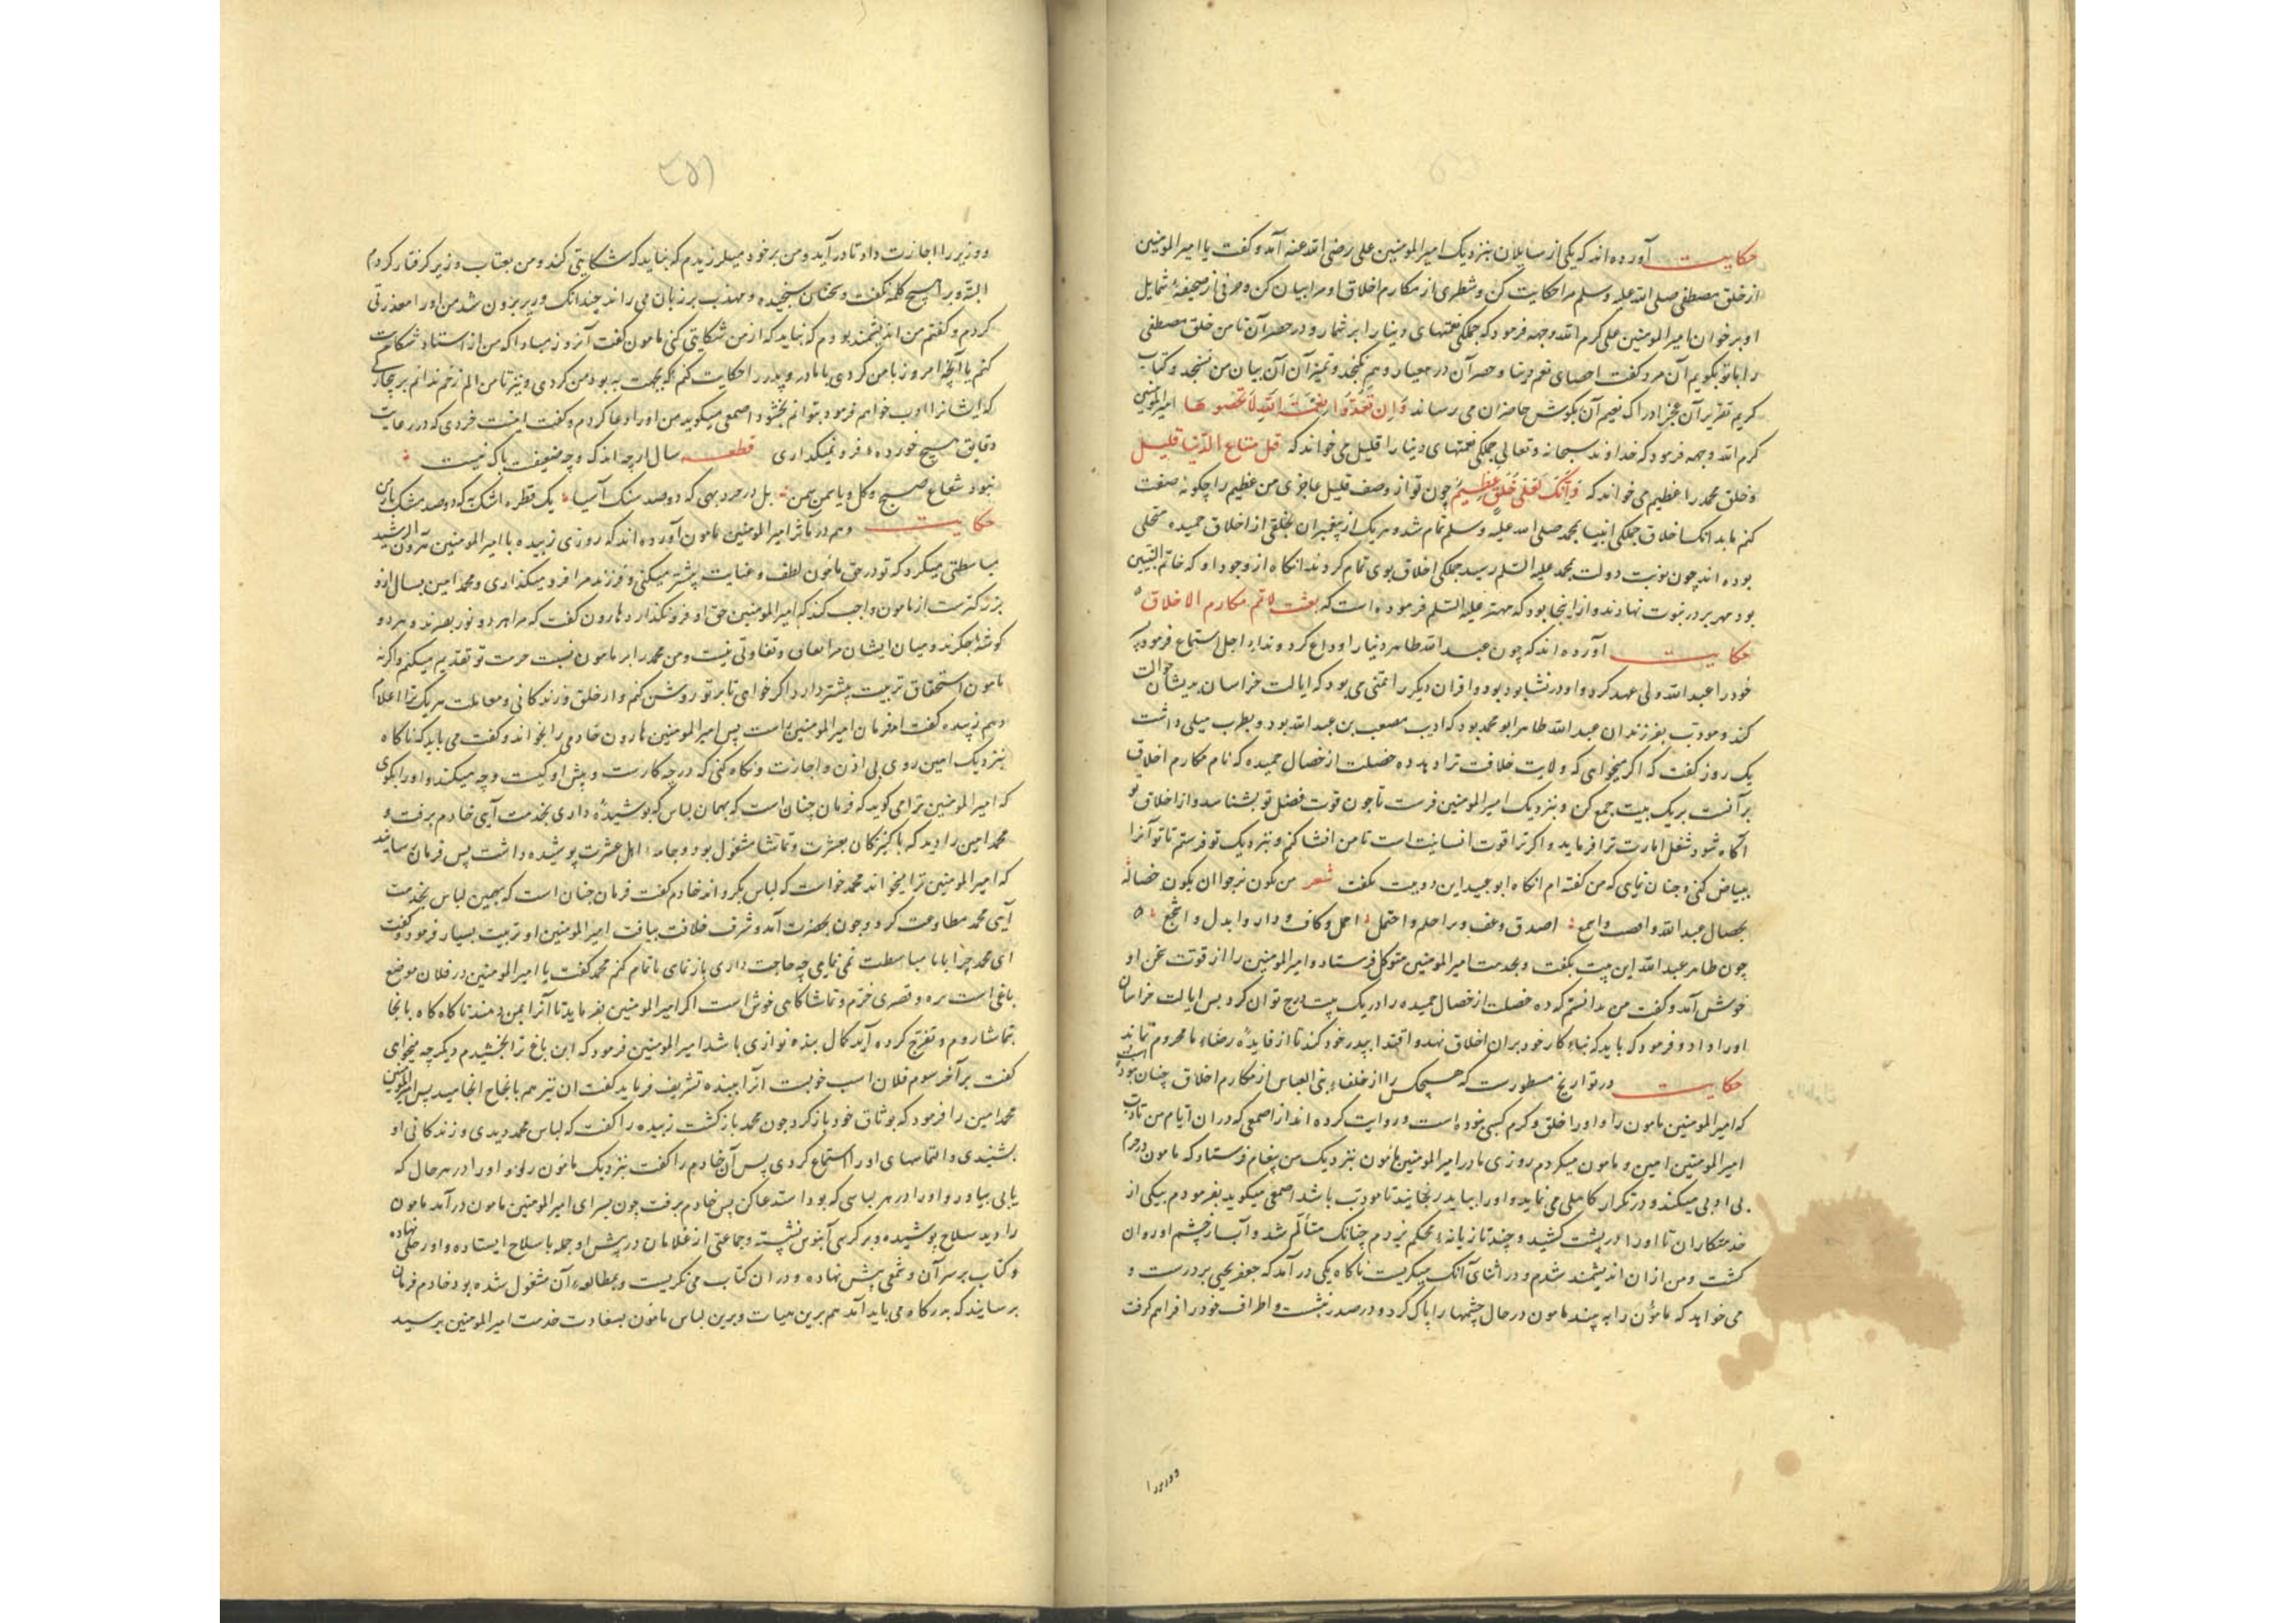 حکایت آورده اند که یکی از سایلان بنزدیک امیر المومنین علی رضی الله عنه آمد و گفت یا امیر المومنین
از خلق مصطفی صلی الله علیه وسلم مرا حکایت کن و شطری از مکارم اخلاق او مرا بیان کن و حرفی از صحیفهٔ شمایل
او بر خوان امیر المومنین علی کرم الله وجهه فرمود که جملگی نعمتهای دنیا را بر شمار و در حصر آن تا من خلق مصطفی
را با تو بگویم آن مرد گفت احصای نعم دنیا و حصر آن در معیار وهم نگنجد و تمیز آن آن بیان من نسنجد و کتاب
کریم تقریر آن عجز ادراک نعیم آن بگوش حاضران می رساند وَاِن تَعُدّوا نِعمَتَ اللّه لاَ تُحصوها امیر المومنین
کرم الله وجهه فرمود که خداوند سبحانه و تعالی جملگی نعمتهای دنیا را قلیل می خواند که قل متاع الدّنیا قلیل
و خلق محمد را عظیم می خواند که وَاِنّکَ لَعَلی خُلُقٍ عَظیم چون تو از وصف قلیل عاجزی من عظیم را چگونه صفت
کنم بدانک اخلاق جملگی انبیا بمحمد صلی الله علیه وسلم تمام شد و هر یک از پیغمبران بخلقی از اخلاق حمیده متحلی
بوده اند چون نوبت دولت بمحمد علیه السّلم رسید جملگی اخلاق بوی تمام کردند انگاه از وجود او که خاتم النبیین
بود مهر بر در نبوت نهادند و از اینجا بود که مهتر علیه السّلم فرموده است که بعثت لاتمم مکارم الاخلاق
حکایت آورده اند که چون عبد الله طاهر دنیا را وداع کرد و نداء اجل استماع فرمود پسر
خود را عبد الله ولی عهد کرد و او در نشابور بود و اقران دیگر را تمنی می بود که ایالت خراسان بدیشان حوالت
کند و مودب بفرزندان عبد الله طاهر ابو محمد بود که ادیب مصعب بن عبد الله بود و بطرب میلی داشت
یک روز گفت که اگر میخواهی که ولایت خلافت ترا دهد ده خصلت از خصال حمیده که نام مکارم اخلاق
بر آنست بر یک بیت جمع کن و بنزدیک امیر المومنین فرست تا چون قوت فضل تو بشناسد و از اخلاق تو
آگاه شود شغل امارت ترا فرماید و اگر ترا قوت انسانیت است تا من انشا کنم و بنزدیک تو فرستم تا تو آنرا
بیاض کنی و چنان نمایی که من گفته ام انگاه ابو عبید این دو بیت بگفت شعر من یکون نرجوا ان یکون خصاله
بخصال عبد الله وانصت واسمع اصدق وعف وبر احلم واحتمل احمل وکاف ودار وابدل واشجع
چون طاهر عبد الله این بیت بگفت و بخدمت امیر المومنین متوکل فرستاد و امیر المومنین را از قوت سخن او
خوش آمد و گفت من ندانستم که ده خصلت از خصال حمیده را در یک بیت درج توان کرد پس ایالت خراسان
او را داد و فرمود که باید که بناء کار خود بر آن اخلاق نهد و اقتدا بپدر خود کند تا از فایدهٔ رضاء ما محروم نماند
حکایت در تواریخ مسطورست که هیچکس را از خلفاء بنی العباس از مکارم اخلاق چنان نبوده است
که امیر المومنین مامون را و او را خلق و کرم کسبی بوده است و روایت کرده اند از اصمعی که در ان ایام من تادیب
امیر المومنین امین و مامون میکردم روزی مادر امیر المومنین مامون بنزدیک من پیغام فرستاد که مامون در حرم
بی ادبی میکند و در تکرار کاهلی می نماید و او را بباید رنجانید تا مودب باشد اصمعی میگوید بفرمودم یکی از
خدمتکاران تا او را در پشت کشید و چند تازیانهٔ محکم بزدم چنانک متألم شد و آب از چشم او روان
گشت و من از ان اندیشمند شدم و در اثنای آنک میگریست ناگاه یکی در آمد که جعفر یحیی بر درست و
می خواهد که مامون را به بیند مامون در حال چشمها را پاک کرد و در صدر نشست و اطراف خود را فراهم گرفت
و وزیر را
و وزیر را اجازت داد تا در آید و من بر خود میلرزیدم که نباید که شکایتی کند و من بعتاب وزیر گرفتار گردم
البته و بر هیچ کلمه نگفت و سخنان سنجیده و مهذب بر زبان می راند چندانک وزیر بیرون شد من او را معذرتی
کردم و گفتم من اندیشمند بودم که نباید که از من شکایتی کنی مامون گفت آنروز مباد که من از استاد شکایت
کنم با آنچه امروز با من کردی با مادر و پدر را حکایت کنم که بجهت بهبود من کردی و نیز تا من الم زخم ندانم بر بیچارگی
که ایشانرا ادب خواهم فرمود بتوانم بخشود اصمعی میگوید من او را دعا کردم و گفتم اینت خردی که در رعایت
دقایق هیچ خورده فرو نمیگذاری قطعه سال ارچه اندک و چه ضعیف باک نیست
نبود شعاع صبح و گل و یاسمن سمن
حکایت و هم در مآثر امیر المومنین مامون آورده اند که روزی زبیده با امیر المومنین هرون الرشید
مباسطتی میکرد که تو در حق مامون لطف و عنایت بیشتر میکنی و فرزند مرا فرو میگذاری و محمد امین بسال از و
بزرگترست از مامون واجب کند که امیر المومنین حق او فرو نگذارد هارون گفت که مرا هر دو نور بصرند و هر دو
گوشهٔ جگرند و میان ایشان مرا بعاق و تفاوتی نیست و من محمد را بر مامون نسبت حرمت تو تقدیم میکنم و اگر نه
مامون استحقاق تربیت بیشتر دارد اگر خواهی تا بر تو روشن کنم و از خلق و زندگانی و معاملت هر یک ترا اعلام
دهم زبیده گفت امر فرمان امیر المومنین است پس امیر المومنین هارون خادمی را بخواند و گفت می باید که ناگاه
بنزدیک امین روی بی اذن و اجازت و نگاه کنی که در چه کارست و پیش او کیست و چه میکند و او را بگوی
که امیر المومنین ترا می گوید که فرمان چنان است که بهمان لباس که پوشیدهٔ داری بخدمت آیی خادم برفت و
محمد امین را دید که با کنیزکان بعشرت و تماشا مشغول بود و جامهٔ اهل عشرت پوشیده داشت پس فرمان رسانید
که امیر المومنین ترا میخواند محمد خواست که لباس بگرداند خادم گفت فرمان چنان است که بهمین لباس بخدمت
آیی محمد مطاوعت کرد و چون بحضرت آمد و شرف خلافت بیافت امیر المومنین او تربیت بسیار فرمود و گفت
ای محمد چرا با ما مباسطت نمی نمایی چه حاجت داری باز نمای تا تمام کنم محمد گفت یا امیر المومنین در فلان موضع
باغی است بره و قصری خرّم و تماشاگاهی خوش است اگر امیر المومنین بفرماید تا آنرا بمن دهند تا گاه گاه بانجا
بتماشا روم و تفرّج کرده آید کمال بنده نوازی باشد امیر المومنین فرمود که این باغ ترا بخشیدم دیگر چه میخواهی
گفت بر آخر سوم فلان اسب خوبست آنرا ببنده تشریف فرماید گفت ان نیز هم بانجاح انجامید پس امیر المومنین
محمد امین را فرمود که بوثاق خود باز گرد چون محمد باز گشت زبیده را گفت که لباس محمد دیدی و زندگانی او
بشنیدی و التماسهای او را استماع کردی پس آن خادم را گفت بنزدیک مامون رو و او را در هر حال که
یابی بیاور و او را در هر لباسی که بود استدعا کن پس خادم برفت چون بسرای امیر المومنین مامون در آمد مامون
را دید سلاح پوشیده و بر کرسی آبنوس نشسته و جماعتی از غلامان در پیش او جمله با سلاح ایستاده و او رحلی نهاده
و کتاب بر سر آن و شمعی پیش نهاده و در ان کتاب می نگریست و بمطالعهٔ آن مشغول شده بود خادم فرمان
برسانید که بدرگاه می باید آمد هم برین هیات و برین لباس مامون بسعادت خدمت امیر المومنین برسید